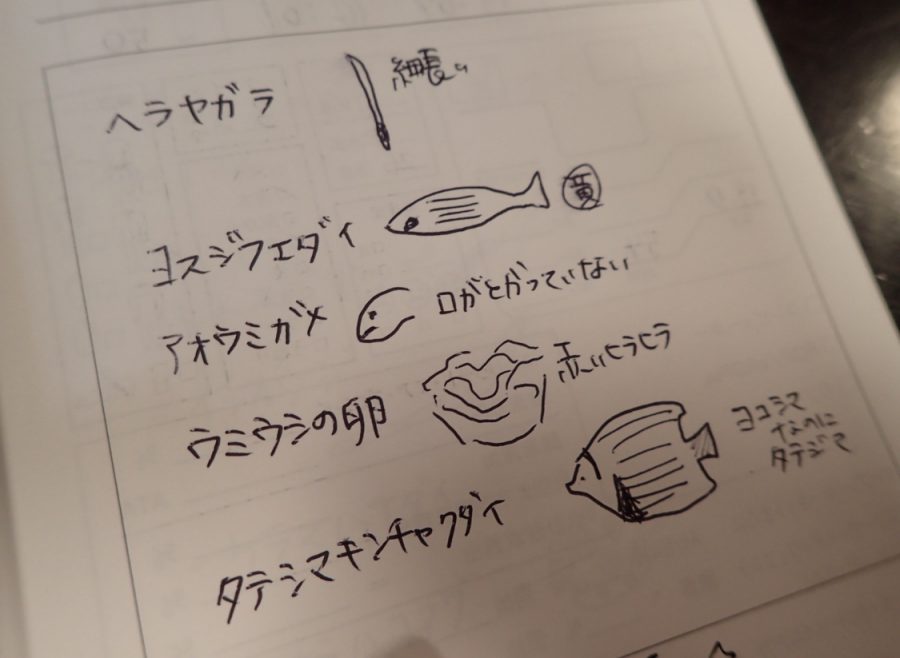 ヘラヤガラ 細長い
ヨスジフエダイ 黄
アオウミガメ 口がとがっていない
ウミウシの卵 赤いヒラヒラ
タテジマキンチャクダイ ヨコシマ
なのに
タテジマ